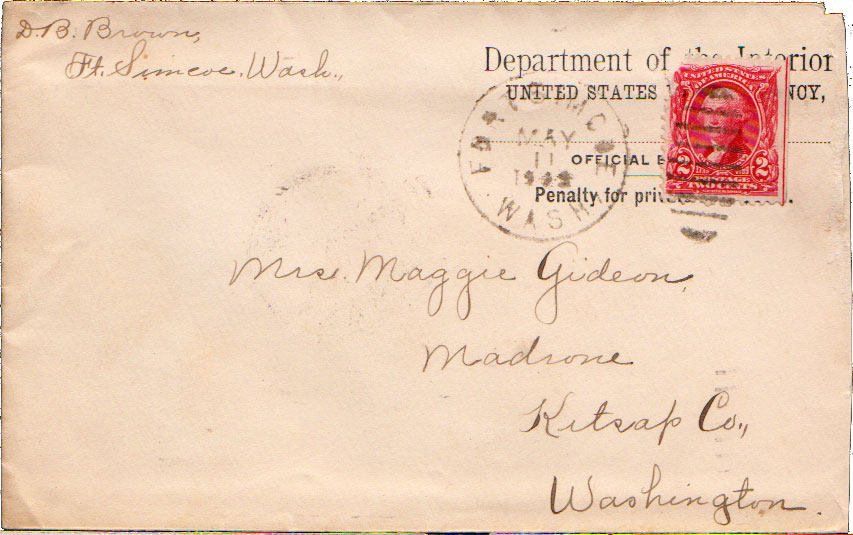 D. B. Brown,
Ft. Simcoe, Wash.,
Department of the Interior
UNITED STATES NCY,
OFFICIAL B
Penalty for pri
FORT SIMCOE
MAY
11
WASH.
UNITED STATES
OF AMERICA
2 2
POSTAGE
TWO CENTS
Mrs. Maggie Gideon,
Madrone
Kitsap Co.,
Washington.